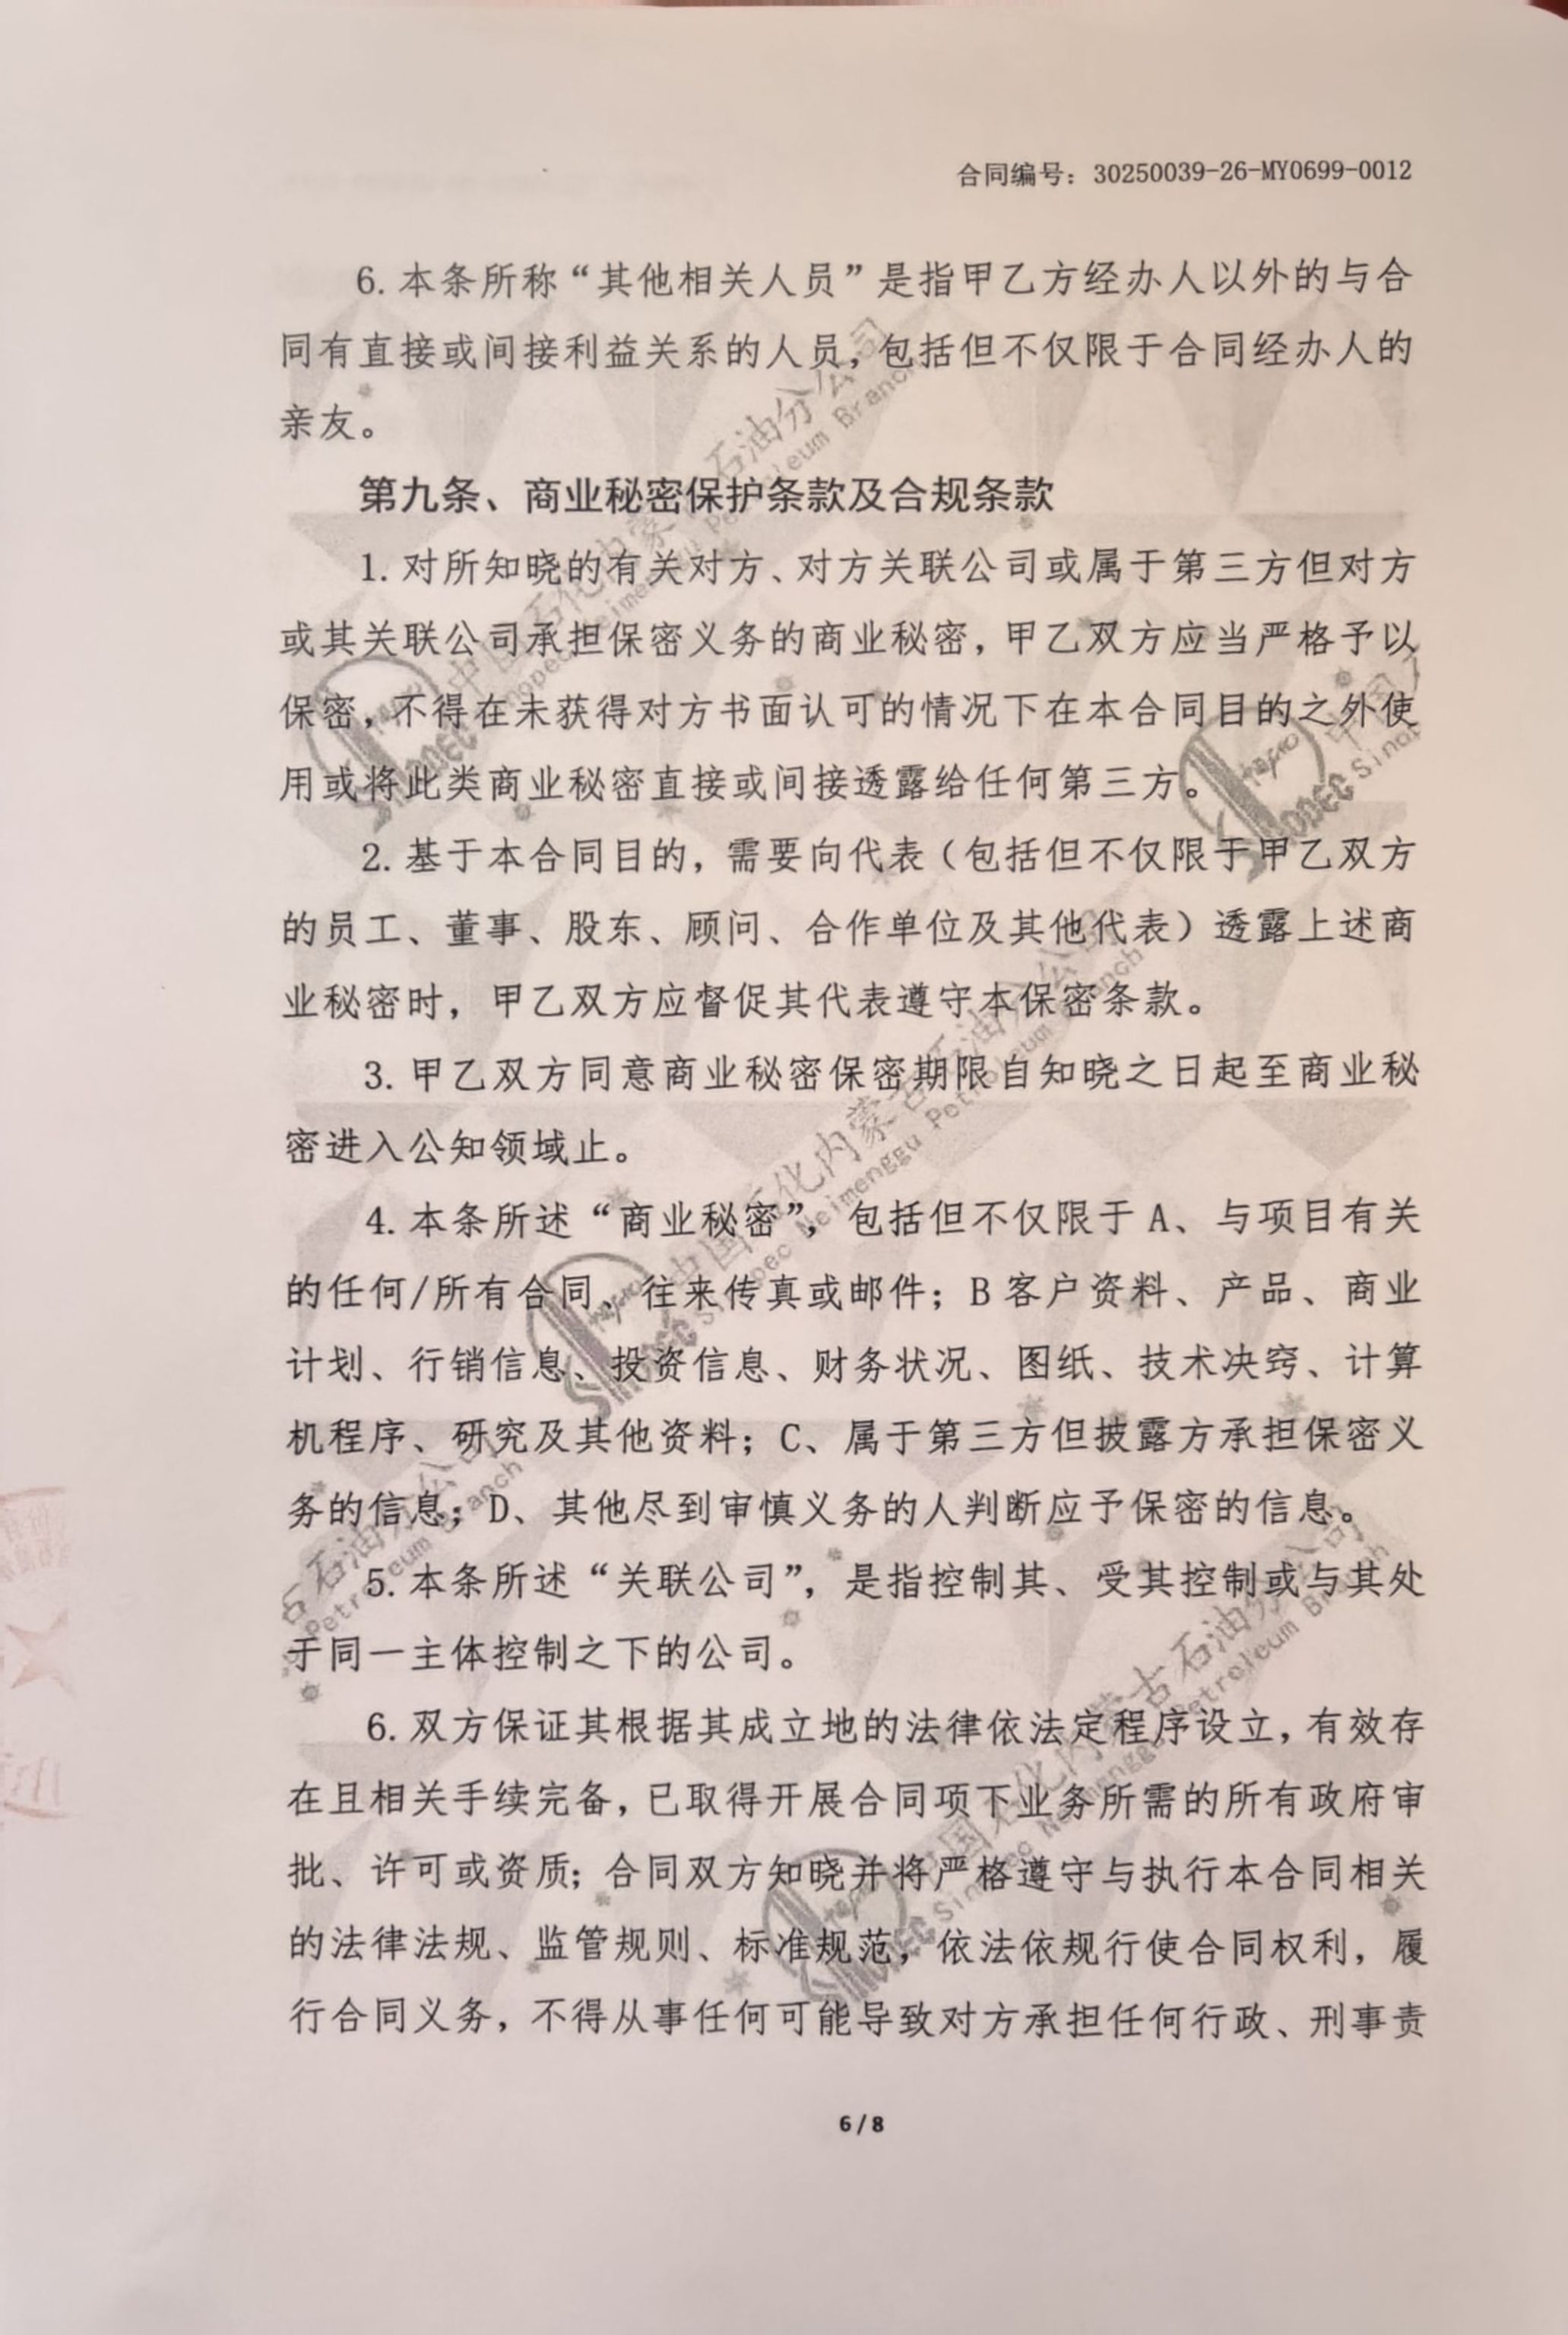 合同编号：30250039-26-MY0699-0012
6.本条所称“其他相关人员”是指甲乙方经办人以外的与合
同有直接或间接利益关系的人员，包括但不仅限于合同经办人的
亲友。
第九条、商业秘密保护条款及合规条款
1.对所知晓的有关对方、对方关联公司或属于第三方但对方
或其关联公司承担保密义务的商业秘密，甲乙双方应当严格予以
保密，不得在未获得对方书面认可的情况下在本合同目的之外使
用或将此类商业秘密直接或间接透露给任何第三方。
2.基于本合同目的，需要向代表（包括但不仅限于甲乙双方
的员工、董事、股东、顾问、合作单位及其他代表）透露上述商
业秘密时，甲乙双方应督促其代表遵守本保密条款。
3.甲乙双方同意商业秘密保密期限自知晓之日起至商业秘
密进入公知领域止。
4.本条所述“商业秘密”，包括但不仅限于 A、与项目有关
的任何/所有合同、往来传真或邮件；B 客户资料、产品、商业
计划、行销信息、投资信息、财务状况、图纸、技术决窍、计算
机程序、研究及其他资料；C、属于第三方但披露方承担保密义
务的信息；D、其他尽到审慎义务的人判断应予保密的信息。
5.本条所述“关联公司”，是指控制其、受其控制或与其处
于同一主体控制之下的公司。
6.双方保证其根据其成立地的法律依法定程序设立，有效存
在且相关手续完备，已取得开展合同项下业务所需的所有政府审
批、许可或资质；合同双方知晓并将严格遵守与执行本合同相关
的法律法规、监管规则、标准规范，依法依规行使合同权利，履
行合同义务，不得从事任何可能导致对方承担任何行政、刑事责
6 / 8
中国石化内蒙古石油分公司
Sinopec Neimenggu Petroleum Branch
SINOPEC